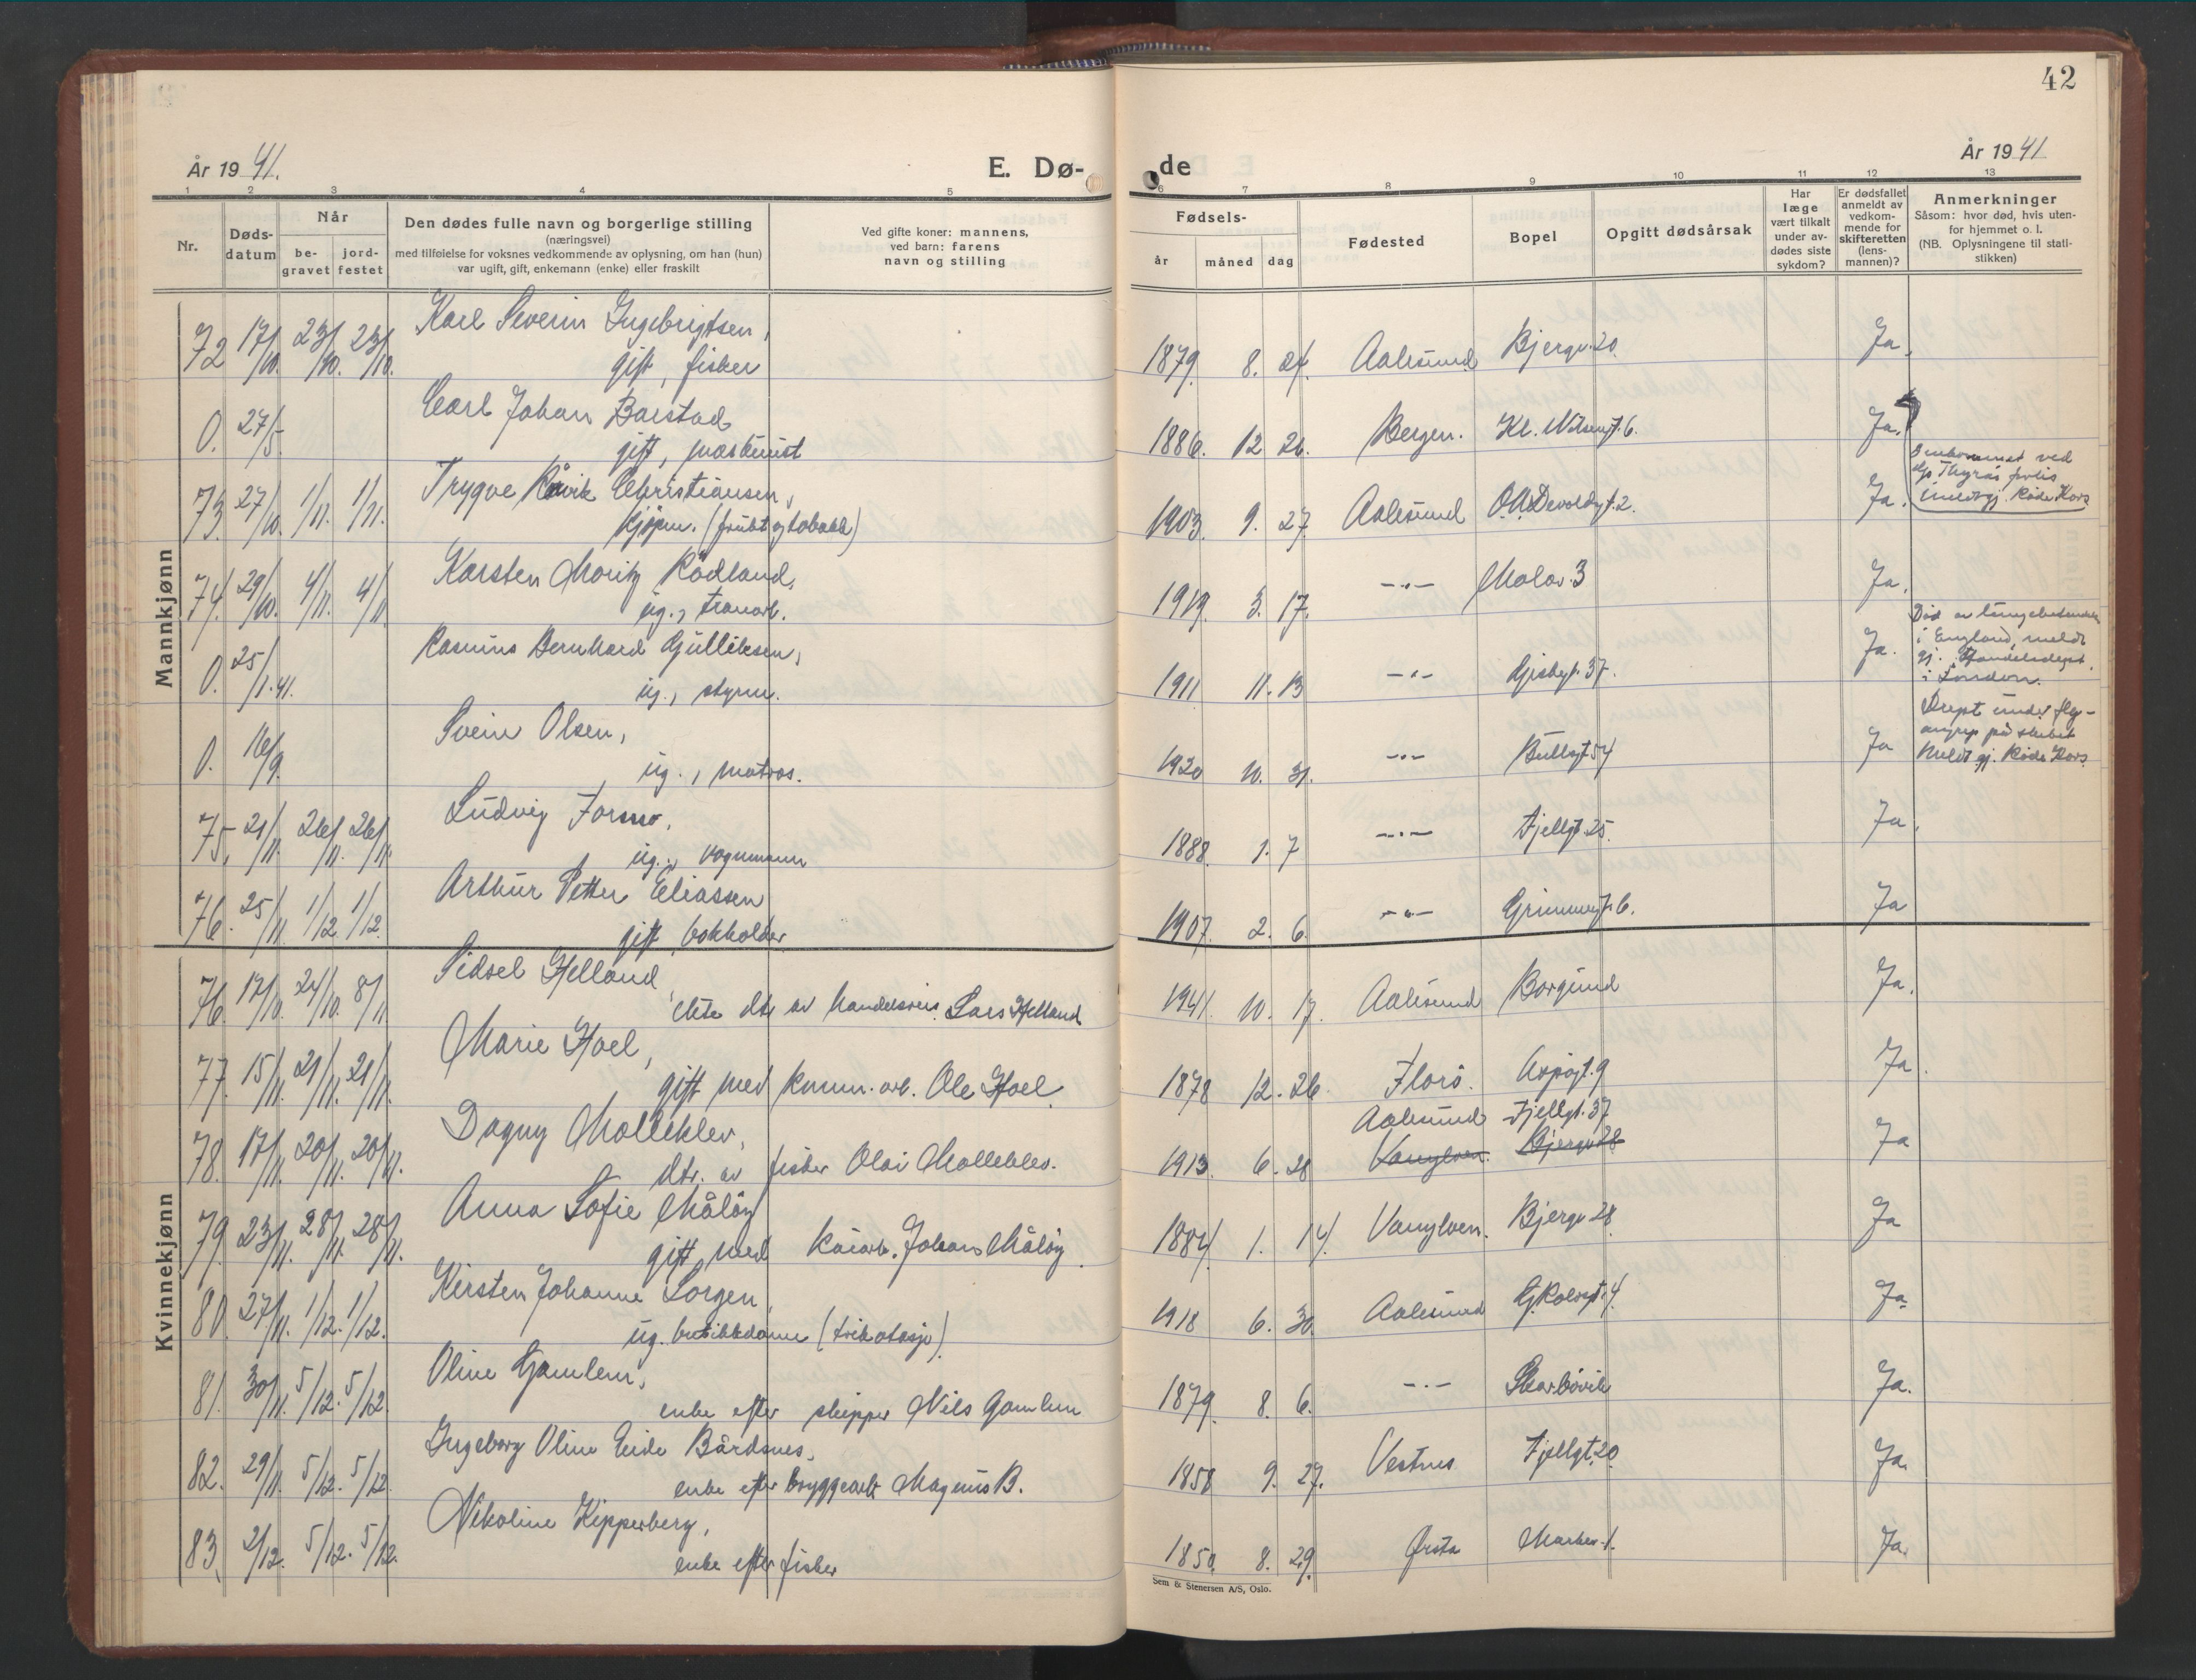 42
År 1941.
E. Dø-
de
År 1941
1 2 3 4 5 6 7 8 9 10 11 12 13
Nr.
Døds-
datum
Når
be-
gravet
jord-
festet
Den dødes fulle navn og borgerlige stilling
(næringsvei)
med tilføielse for voksnes vedkommende av oplysning, om han (hun)
var ugift, gift, enkemann (enke) eller fraskilt
Ved gifte koner: mannens,
ved barn: farens
navn og stilling
Fødsels-
år måned dag
Fødested
Bopel
Opgitt dødsårsak
Har
læge
vært tilkalt
under av-
dødes siste
sykdom?
Er dødsfallet
anmeldt av
vedkom-
mende for
skifteretten
(lens-
mannen)?
Anmerkninger
Såsom: hvor død, hvis uten-
for hjemmet o. l.
(NB. Oplysningene til stati-
stikken)
Mannkjønn
72 17/10. 23/10. 23/10. Karl Severin Ingebrigtsen,
gift, fisker
1879. 8. 24. Aalesund Bjergv. 20. Ja.
0. 27/5. Carl Johan Barstad
gift, maskinist
1886. 12 26. Bergen. Kl. Nilsengt. 6. Ja.
73. 27/10. 1/11. 1/11. Trygve Råvik Christiansen,
kjøpm. (frukt og tobakk)
1903. 9. 27. Aalesund O.A. Devoldsgt. 2. Ja.
Omkommet ved
Thyras forlis
Røde Kors
74. 29/10. 4/11. 4/11 Karsten Moritz Rödland,
ug., tranarb.
1919. 3. 17. -"- Molov. 3 Ja.
0. 25/1.41. Rasmus Bernhard Gulliksen,
ug., styrm.
1911 11. 13 -"- 37. Ja.
Død av
i England, meldt
gj.
i London.
0. 16/9. Svein Olsen,
ug., matros.
1920 10. 31. -"- Bullsgt. 54 Ja
Drept under fly-
angrep på skibet
Meldt gj. Røde Kors.
75, 21/11. 26/11. 26/11. Ludvig Formo,
ug., vognmann
1888. 1. 7 -"- Fjellgt. 25. Ja.
76. 25/11. 1/12. 1/12. Arthur Petter Eliassen
gift, bokholder
1907. 2. 6. -"- Grimmergt. 6. Ja
Kvinnekjønn
76. 17/10. 24/10. 8/11 Sidsel Helland,
ekte dtr av handelsreis. Lars Helland
1941. 10. 17. Aalesund Borgund Ja.
77. 15/11. 21/11. 21/11. Marie Hoel,
gift med komm. arb. Ole Hoel.
1878 12. 26. Florö. Aspøgt. 9 Ja.
78. 17/11. 20/11. 20/11. Dagny Molleklev,
dtr. av fisker Olai Molleklev.
1913 6. 28 Aalesund Fjellgt. 37 Ja
Vanylven. Bjergv 28
79. 23/11. 28/11. 28/11. Anna Sofie Måløy
gift med kaiarb. Johans Måløy.
1884. 1. 14. Vanylven. Bjergv 28. Ja
80. 27/11. 1/12. 1/12. Kirsten Johanne Sorgen,
ug. butikkdame (trikotasje).
1918 6. 30. Aalesund 4. Ja.
81. 30/11. 5/12. 5/12. Oline Gamlem,
enke efter skipper Nils Gamlem
1879. 8. 6. -"- Skarbøvik Ja.
82. 29/11. 5/12. 5/12. Ingeborg Oline Eide Bårdsnes,
enke efter bryggearb. Magnus B.
1858 9. 27. Vestnes Fjellgt. 20. Ja.
83, 2/12. 5/12. 5/12. Nikoline Kipperberg,
enke efter fisker
1850. 8. 29. Ørsta Ja.
Sem & Stenersen A/S, Oslo.